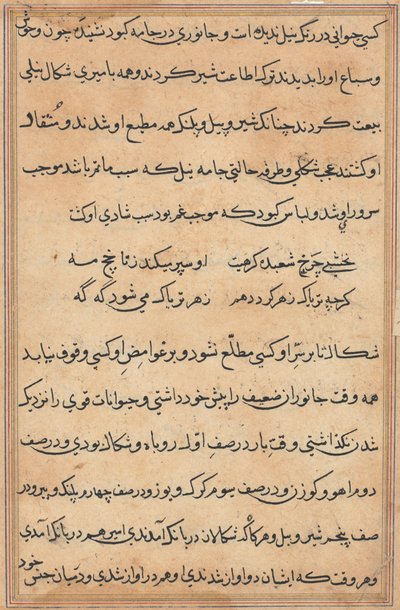 کسی حیوانی در رنگ نیل ندیده است و جانوری در جامه کبود نشنیده چون وحوش
و سباع او را بدیدند ترک اطاعت شیر کردند و همه با میری شکال نیلی
بیعت کردند چنانکه شیر و پیل و پلنگ همه مطیع او شدند و منقاد
او کشتند عجب شکلی و طرفه حالتی جامه نیل که سبب ماتم باشد موجب
سرور او شد و لباس کبود که موجب غم بود سبب شادی او کشت
نخشبی چرخ شعبده کرهیت او سپر میکند ز تا نخ مه
کرچه تریاک زهر کردد هم زهر تریاک می شود که که
شکال تا بر سر او کسی مطلع نشود و بر غوامض او کسی وقوف نیابد
همه وقت جانوران ضعیف را پیش خود داشتی و حیوانات قوی را نزدیک
شدن نکذاشتی وقت بار در صف اول روباه و شکال بودی و در صف
دوم اهو و کوزن و در صف سوم کرک و یوز و در صف چهارم پلنک و ببر و در
صف پنجم شیر و پیل و هرکاه که شکالان در بانک آمدندی او نیز هم در بانک آمدی
و هر وقت که ایشان در اواز شدندی او هم در اواز شدی و در میان جنس خود